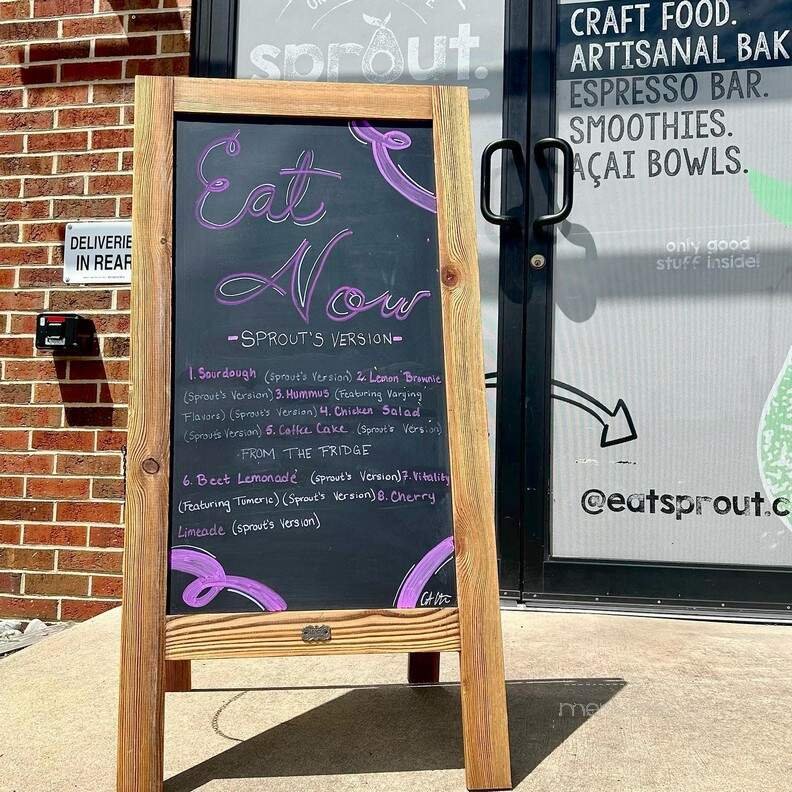 sprout.
CRAFT FOOD.
ARTISANAL BAK
ESPRESSO BAR.
SMOOTHIES.
AÇAI BOWLS.
only good
stuff inside!
@eatsprout.c
DELIVERIE
IN REAR
Eat
Now
-SPROUT'S VERSION-
1. Sourdough (Sprout's Version) 2. Lemon Brownie
(Sprout's Version) 3. Hummus (Featuring Varying
Flavors) (Sprout's Version) 4. Chicken Salad
(Sprout's Version) 5. Coffee Cake (Sprout's Version)
FROM THE FRIDGE
6. Beet Lemonade (Sprout's Version) 7. Vitality
(Featuring Tumeric) (Sprout's Version) 8. Cherry
Limeade (Sprout's Version)